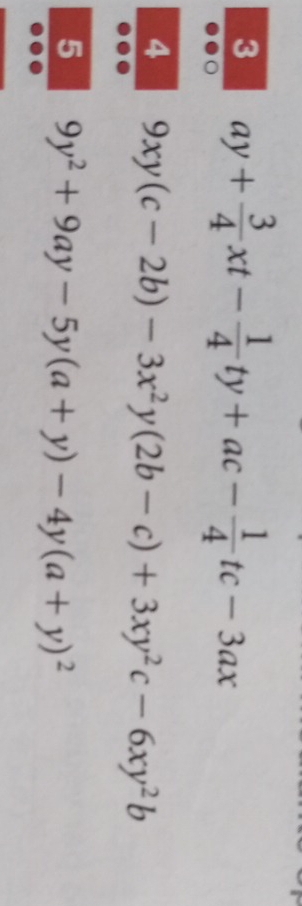 3 ay + 3/4 xt − 1/4 ty + ac − 1/4 tc − 3ax
4 9xy(c − 2b) − 3x²y(2b − c) + 3xy²c − 6xy²b
5 9y² + 9ay − 5y(a + y) − 4y(a + y)²